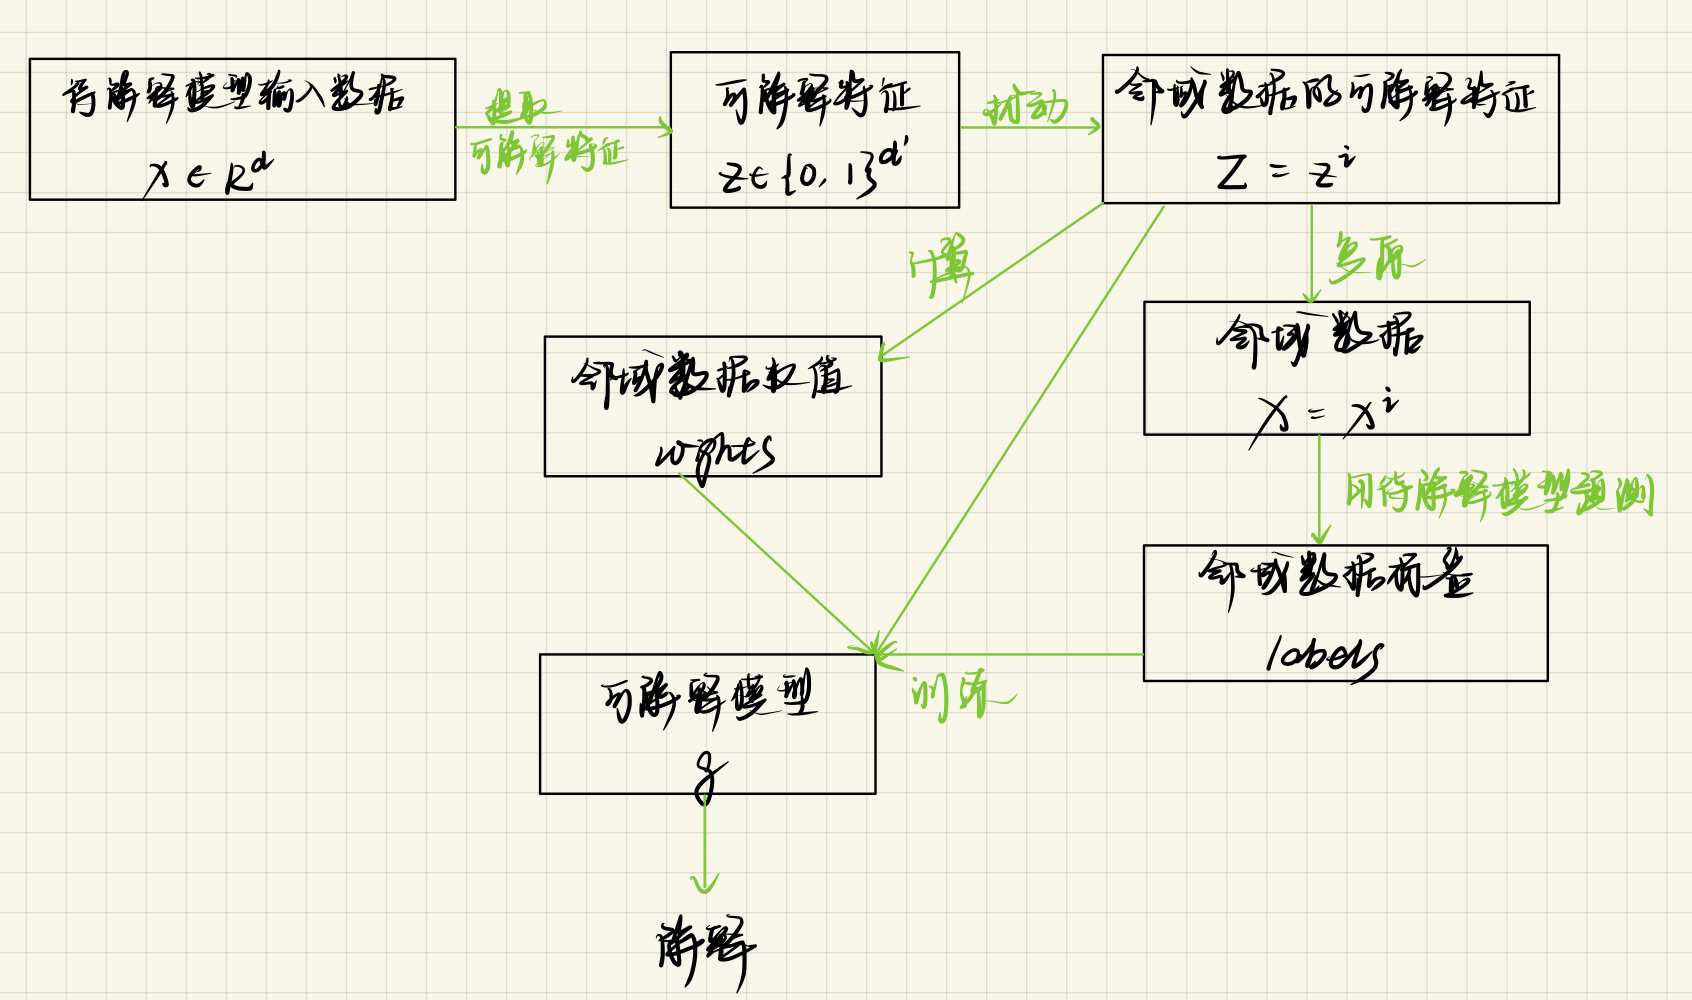 待解释模型输入数据
x ∈ R^d
提取
可解释特征
可解释特征
z∈{0, 1}^d'
扰动
邻域数据的可解释特征
Z = z^i
计算
复原
邻域数据权值
wghts
邻域数据
X = x^i
用待解释模型预测
邻域数据标签
labels
训练
可解释模型
g
解释